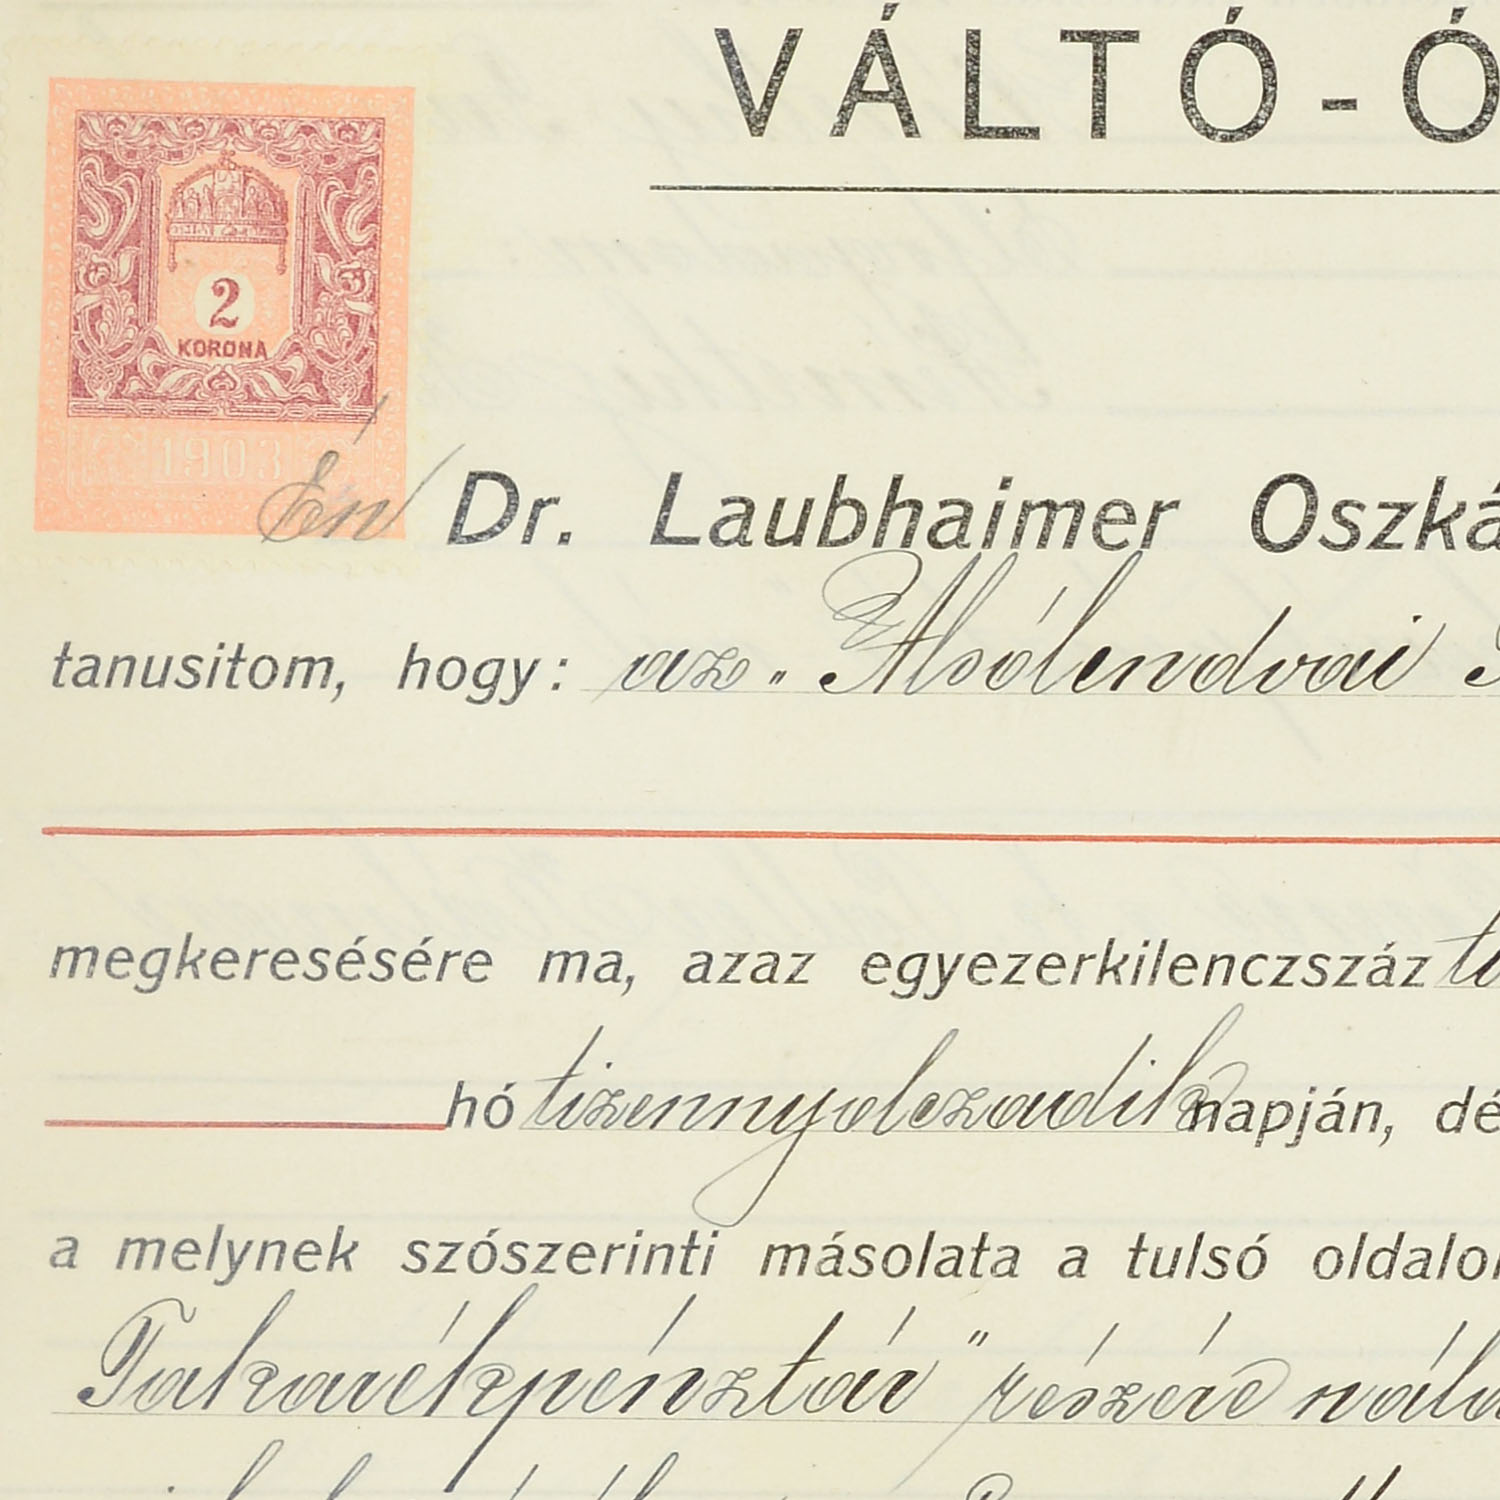 VÁLTÓ-Ó
2
KORONA
1903
Én Dr. Laubhaimer Oszká
tanusitom, hogy: az „Alsólendvai
megkeresésére ma, azaz egyezerkilenczszáz
hó tizennyolczadik napján, dé
a melynek szószerinti másolata a tulsó oldalon
Takarékpénztár" részére nála